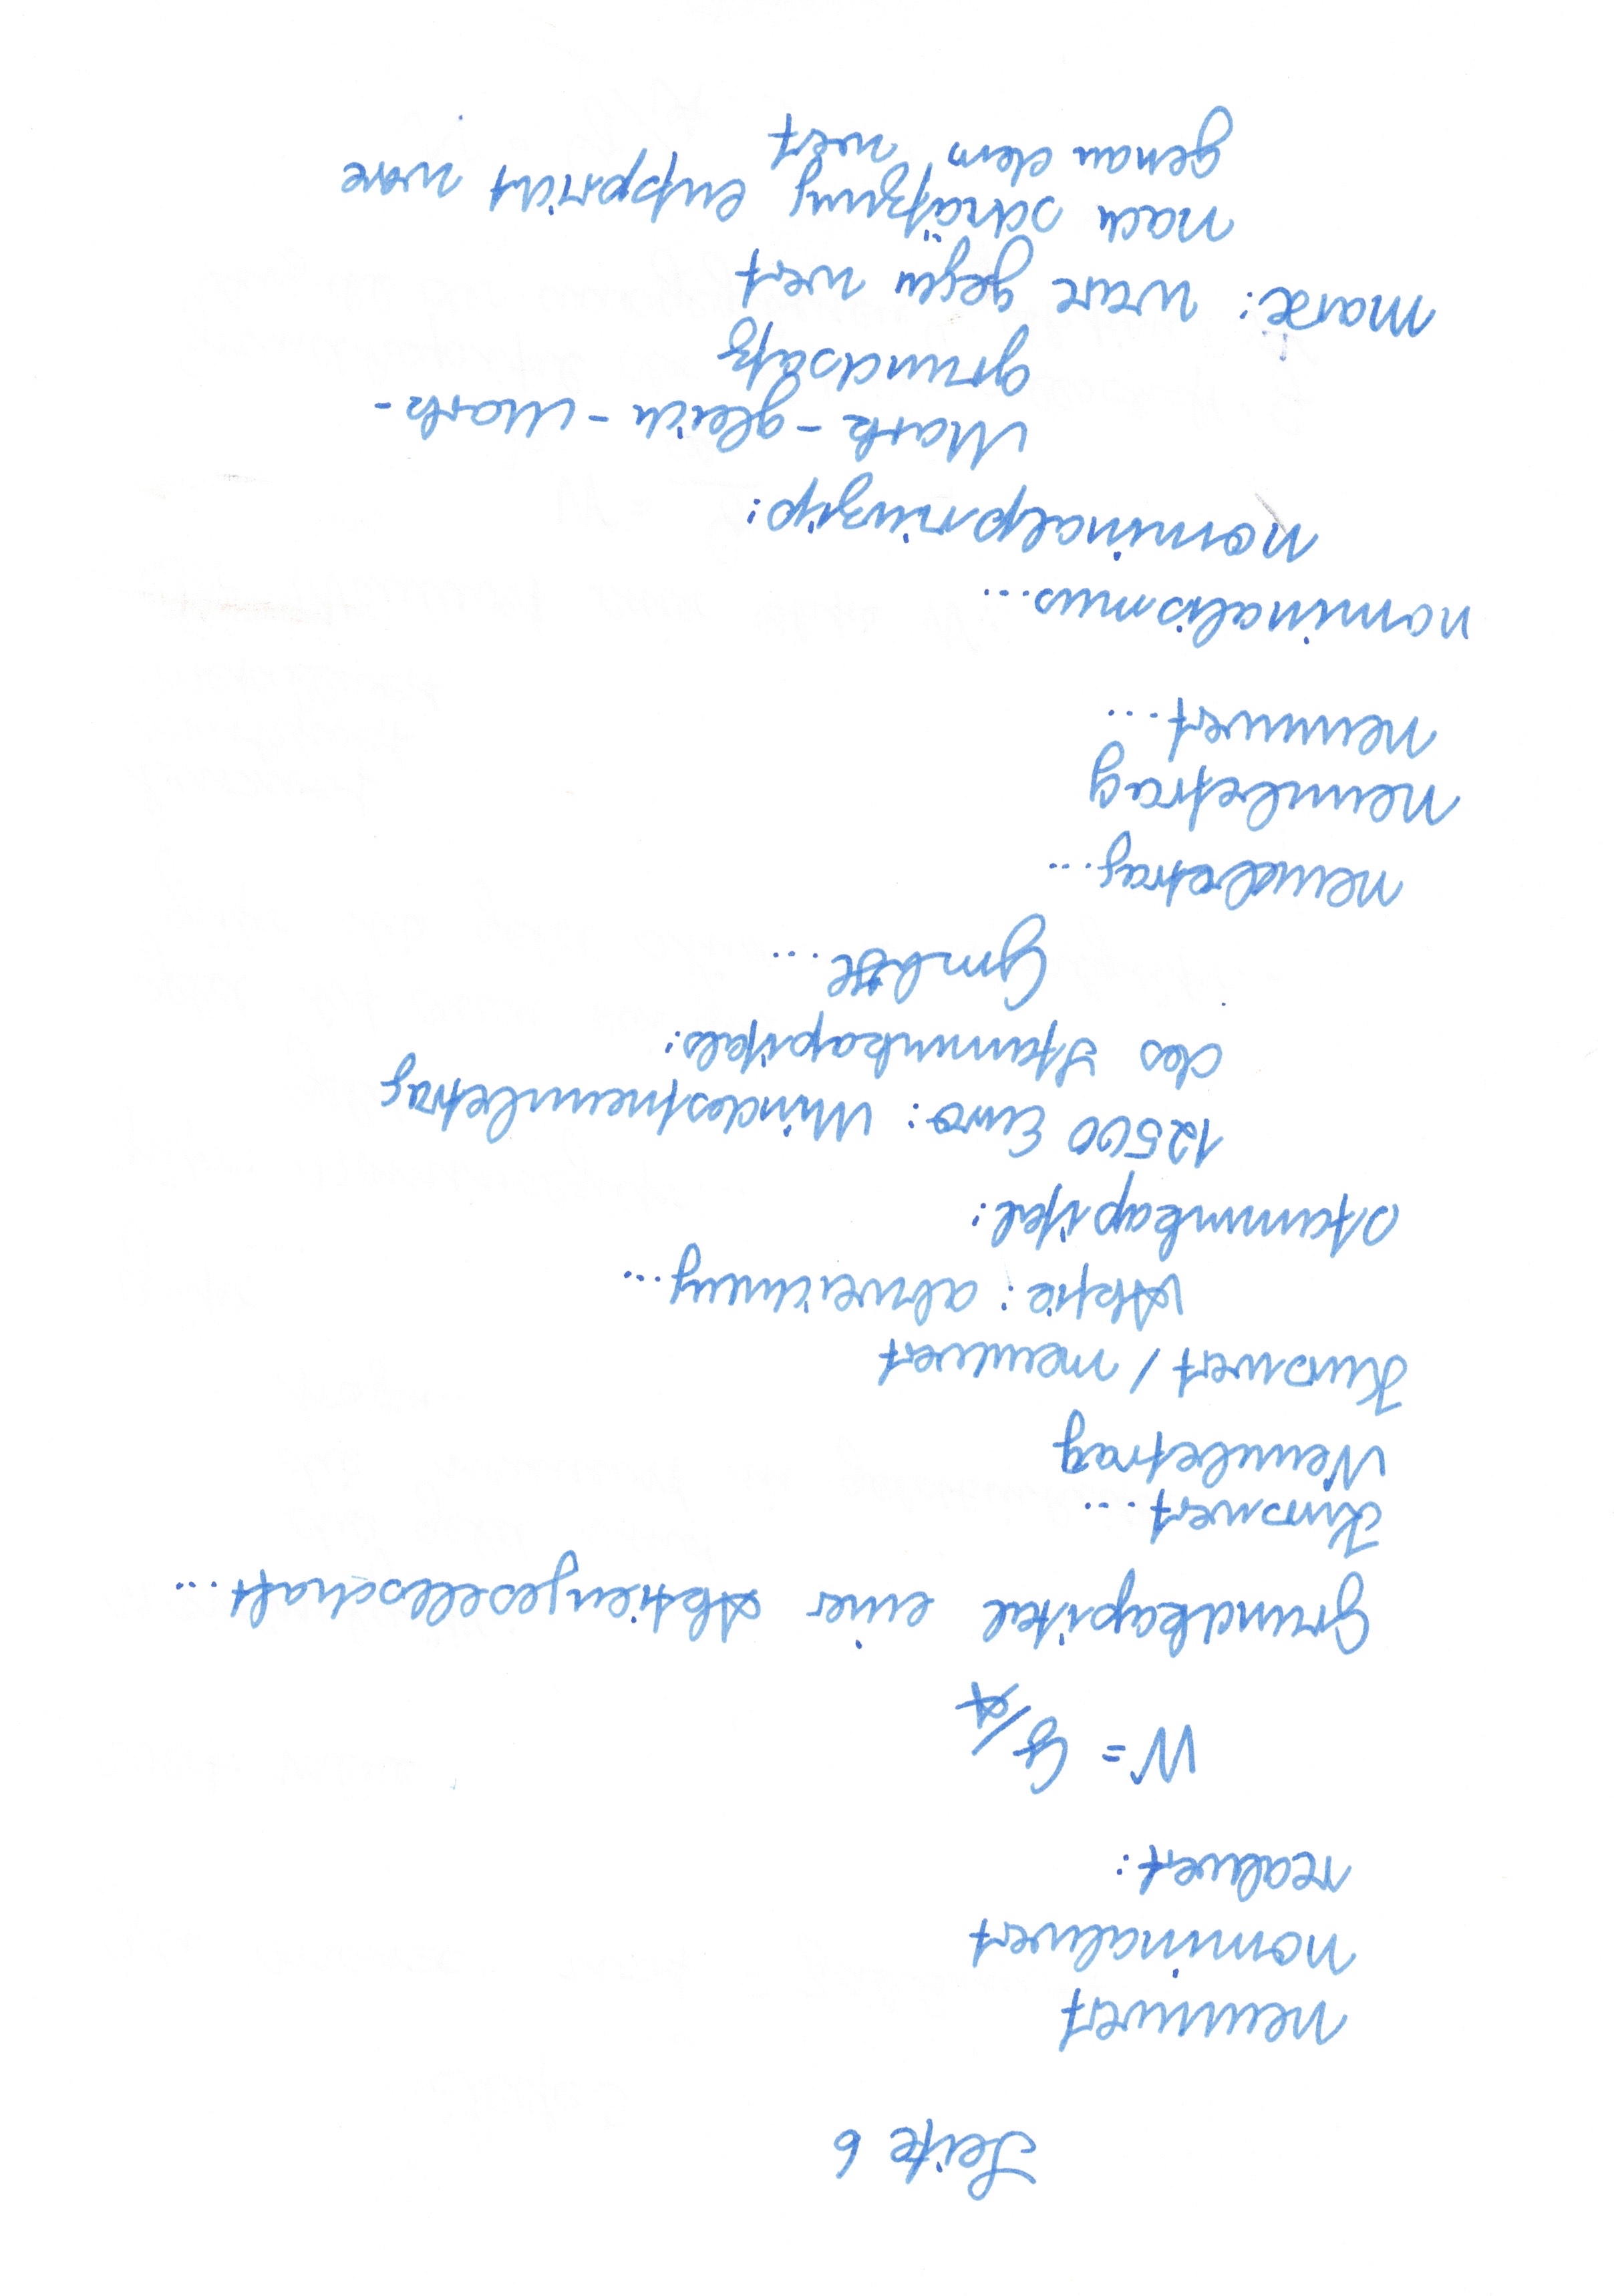 Seite 6
nennwert
nominalwert
realwert:
N = G/A
Grundkapital einer Aktiengesellschaft...
Kurswert...
Nennbetrag
Kurswert / nennwert
Aktie: abweichung...
stammkapital:
12500 Euro: Mindestnennbetrag
des Stammkapitals:
GmbH
nennbetrag...
nennbetrag
nennwert...
nominalismus...
nominalprinzip:
Mark-gleich-Mark-
grundsatz
marx: ware gegen wert
nach schätzung entspricht ware
genau dem wert